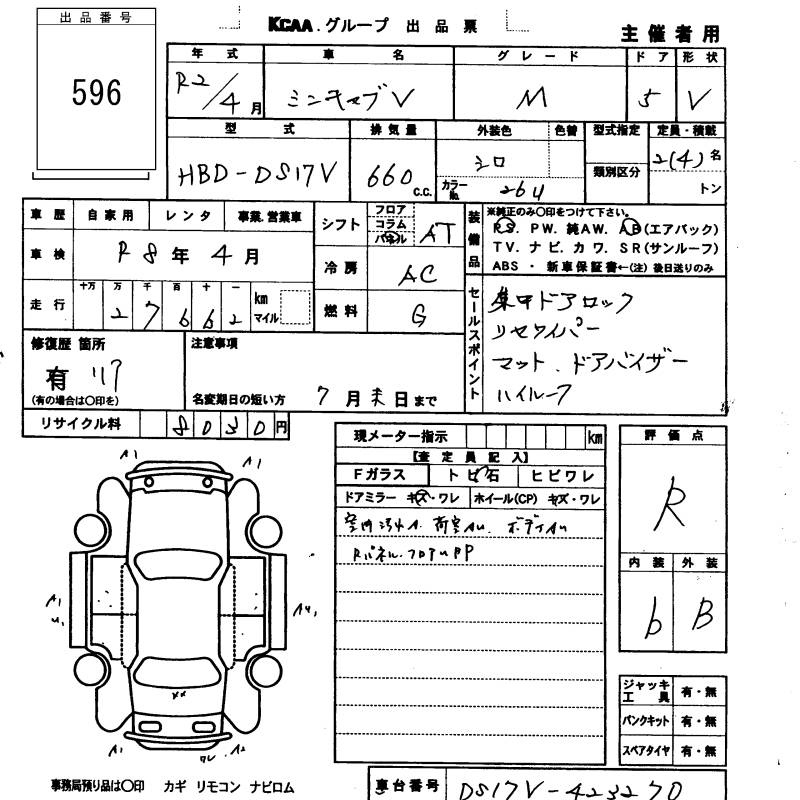 出品番号
596
KCAA.グループ 出品票
主催者用
年式 車名 グレード ドア 形状
R2/4月 ミンキャブV M 5 V
型式 排気量 外装色 色替 型式指定 定員・積載
HBD-DS17V 660 c.c. シロ 類別区分 2(4)名
カラーNo. 264 トン
車歴 自家用 レンタ 事業.営業車
車検 R8年4月
走行 十万 万 千 百 十 一 km マイル
27662
シフト フロア コラム パネル AT
冷房 AC
燃料 G
装備品
※純正のみ〇印をつけて下さい。
PS. PW. 純AW. AB(エアバック)
TV. ナビ. カワ. SR(サンルーフ)
ABS ・ 新車保証書←(注) 後日送りのみ
セールスポイント
集中ドアロック
リヤワイパー
マット.ドアバイザー
ハイルーフ
修復歴 箇所
有 リア
(有の場合は〇印を)
注意事項
名変期日の短い方 7月末日まで
リサイクル料 8030円
現メーター指示 km
【査定員記入】
Fガラス トビ石 ヒビワレ
ドアミラー キズ・ワレ ホイール(CP) キズ・ワレ
室内汚れA. 荷室AU. ボディAU
Rパネル.フロアUPP
評価点
R
内装 外装
b B
ジャッキ工具 有・無
パンクキット 有・無
スペアタイヤ 有・無
A1 A1
A1 U1 A4,
××
A1 A2
事務局預り品は〇印 カギ リモコン ナビロム
車台番号 DS17V-423270